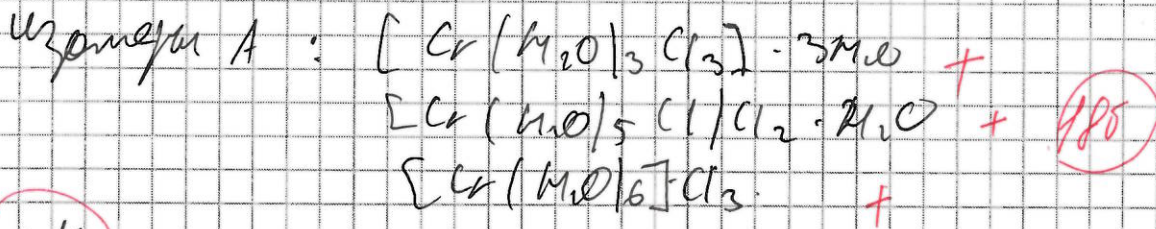 изомеры А : [Cr(H₂O)₃Cl₃]·3H₂O +
[Cr(H₂O)₅Cl]Cl₂·H₂O + 18б
[Cr(H₂O)₆]Cl₃. +